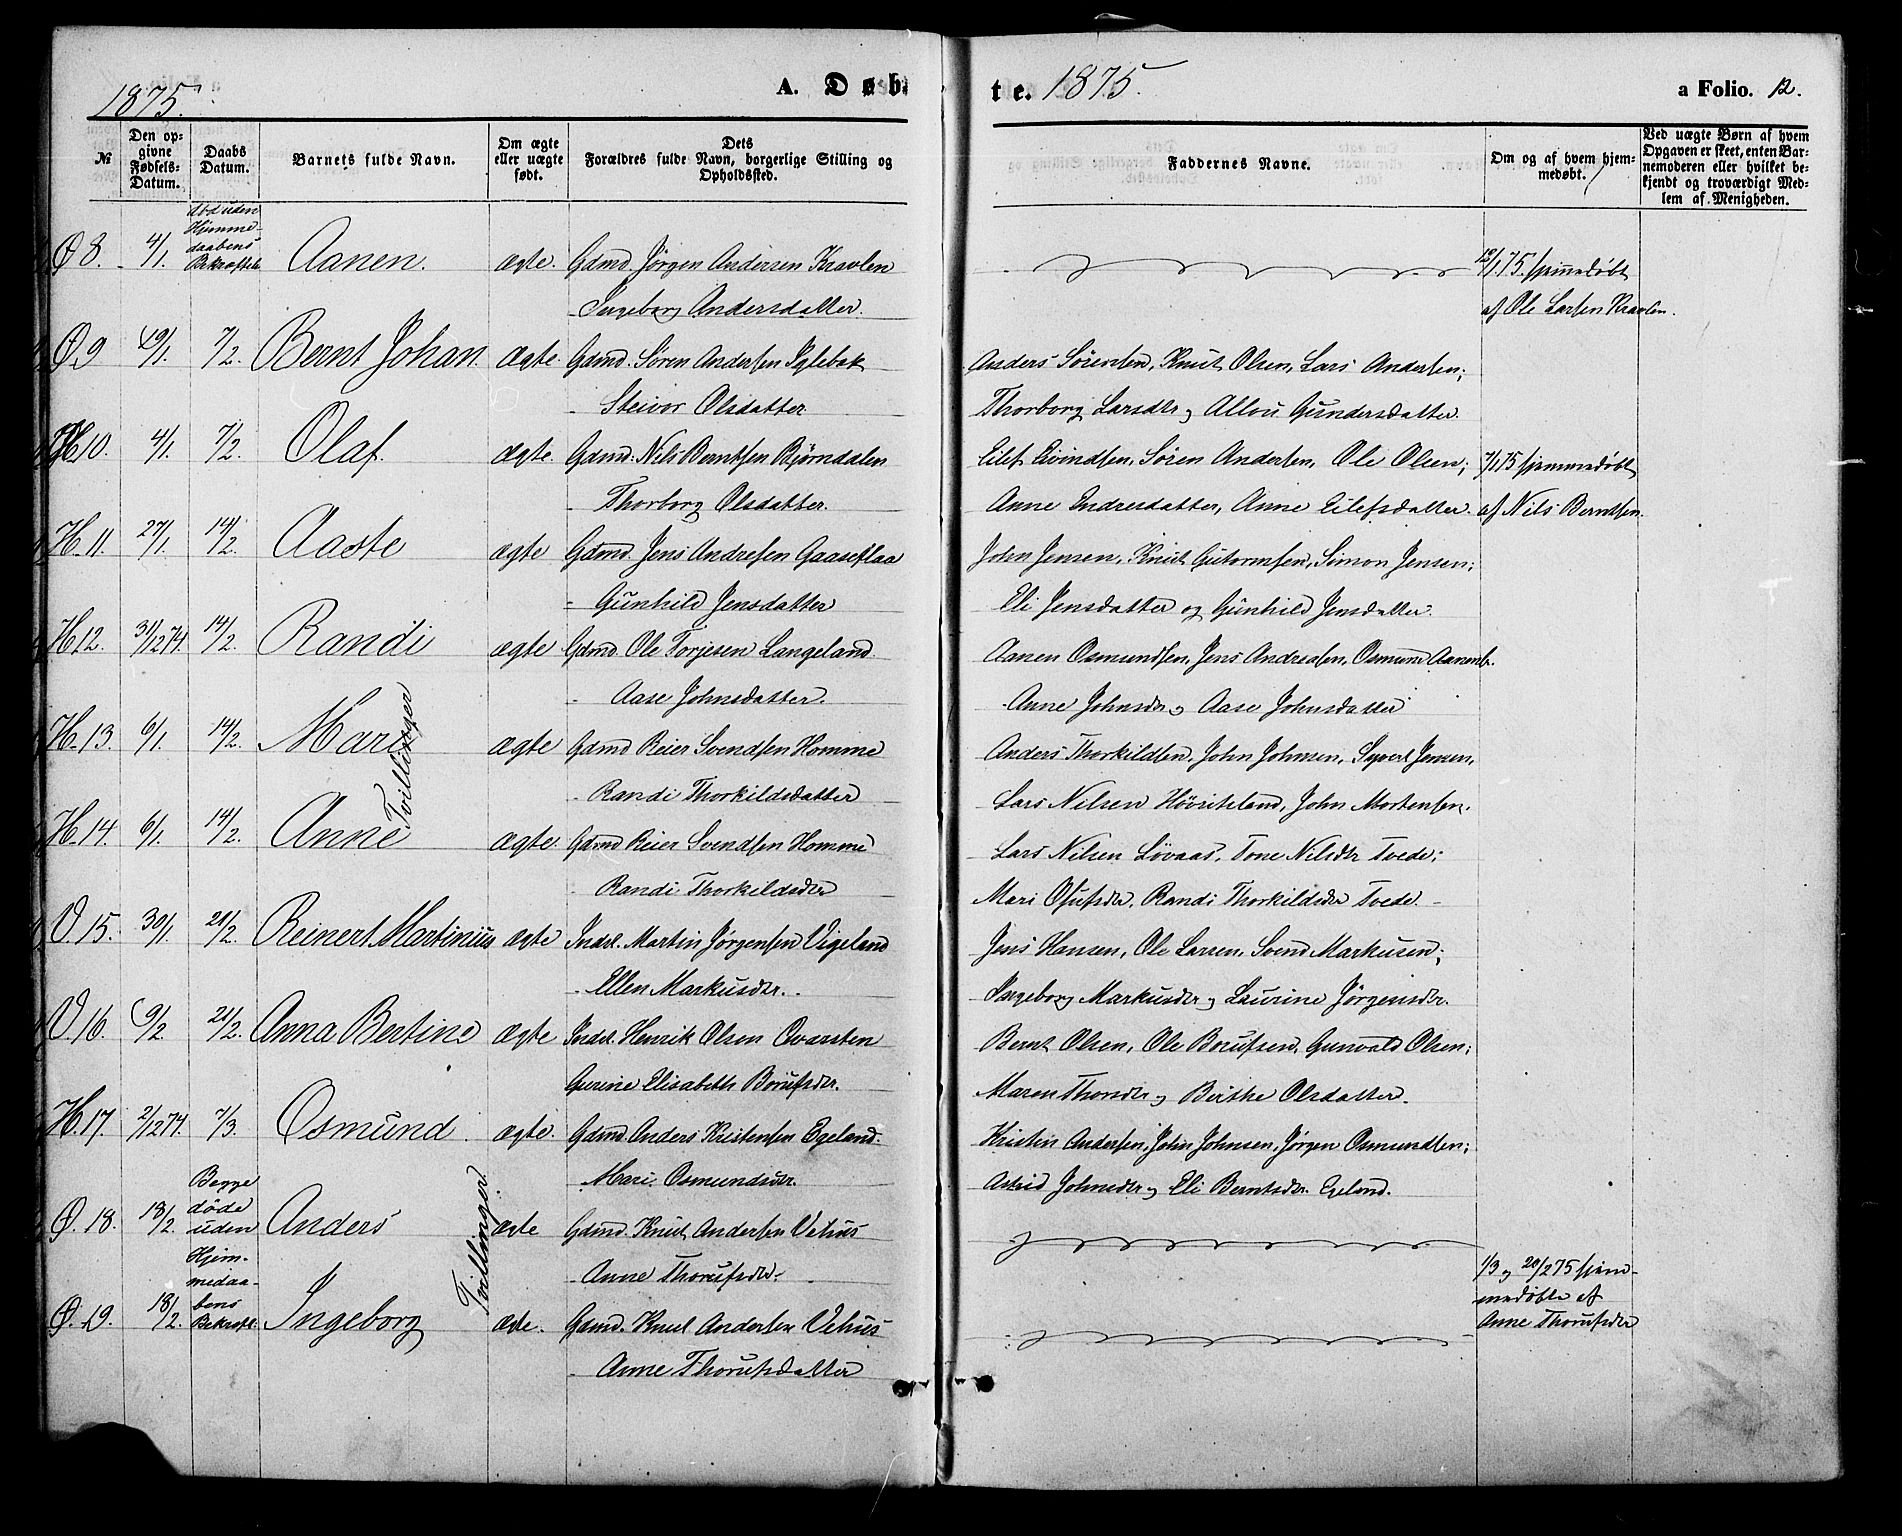 1875.
A. Døb
te. 1875.
a Folio. 12.
№
Den opgivne Fødsels-Datum.
Daabs Datum.
Barnets fulde Navn.
Om ægte eller uægte født.
Dets Forældres fulde Navn, borgerlige Stilling og Opholdssted.
Faddernes Navne.
Om og af hvem hjemmedøbt.
Ved uægte Børn af hvem Opgaven er skeet, enten Barnemoderen eller hvilket bekjendt og troværdigt Medlem af Menigheden.
Ø 8. 4/1. død uden Hjemmedaabens Bekræftels Aanen. ægte. Gdmd. Jørgen Andersen Kravlen 12/1 75. hjemmedøbt
Ingeborg Andersdatter. af Ole Larsen Kravlen.
Ø. 9 19/1. 7/2. Bernt Johan. ægte. Gdmd. Søren Andersen Iglebæk Anders Sørensen, Knut Olsen, Lars Andersen;
Steivor Olsdatter Thorborg Larsdtr og Allou Gundersdatter.
H. 10. 4/1. 7/2. Olaf. ægte. Gdmd. Nils Berntsen Bjørndalen Eilef Eivindsen, Søren Andersen, Ole Olsen; 7/1 75 hjemmedøbt
Thorborg Olsdatter. Anne Endresdatter, Anne Eilefsdatter. af Nils Berntsen.
H. 11. 27/1. 14/2. Aaste ægte Gdmd. Jens Andresen Gaaseflaa John Jensen, Knut Gutormsen, Simon Jensen;
Gunhild Jensdatter Eli Jensdatter og Gunhild Jensdatter.
H 12. 31/12 74. 14/2. Randi ægte Gdmd. Ole Torjesen Langeland. Aanen Osmundsen, Jens Andreasen, Osmund Aanens.
Aase Johnsdatter. Anne Johnsdr og Aase Johnsdatter
H. 13. 6/1. 14/2. Mari Tvillinger ægte Gdmd Reier Svendsen Homme Anders Thorkildsen, John Johnsen, Syvert Jensen,
Randi Thorkildsdatter Lars Nilsen Høvriteland, John Mortensen.
H. 14. 6/1. 14/2. Anne ægte. Gdmd Reier Svendsen Homme Lars Nilsen Løvaas, Tone Nilsdtr Tvede;
Randi Thorkildsdtr Mari Ofufsdtr, Randi Thorkildsdtr Tvede.
V. 15. 30/1. 21/2. Reinert Martinius ægte Indst. Martin Jørgensen Vigeland Jens Hansen, Ole Larsen, Svend Markusen;
Ellen Markusdtr. Ingeborg Markusdtr og Laurine Jørgensdtr.
V. 16. 9/2. 21/2. Anna Bertine ægte Indst. Henrik Olsen Qvarsten Bernt Olsen, Ole Borufsen, Gunvald Olsen;
Gurine Elisabeth Borufsdtr. Maren Thorsdtr og Birthe Olsdatter.
H. 17. 2/12 74. 7/3. Osmund. ægte. Gdmd. Anders Kristensen Egeland. Kristen Andersen, John Johnsen, Jørgen Osmundsen;
Mari Osmundsdtr. Astrid Johnsdtr og Eli Berntsdtr. Egeland.
Ø. 18. 18/2. Begge døde uden Hjemmedaabens Bekræft. Anders Tvillinger ægte Gdmd. Knut Andersen Vehus
Anne Thorufsdtr. 1/3 og 20/2 75 hjemmedøbte af
Ø. 19. 18/2. Ingeborg ægte. Gdmd. Knut Andersen Vehus Anne Thorufsdtr
Anne Thorufsdatter